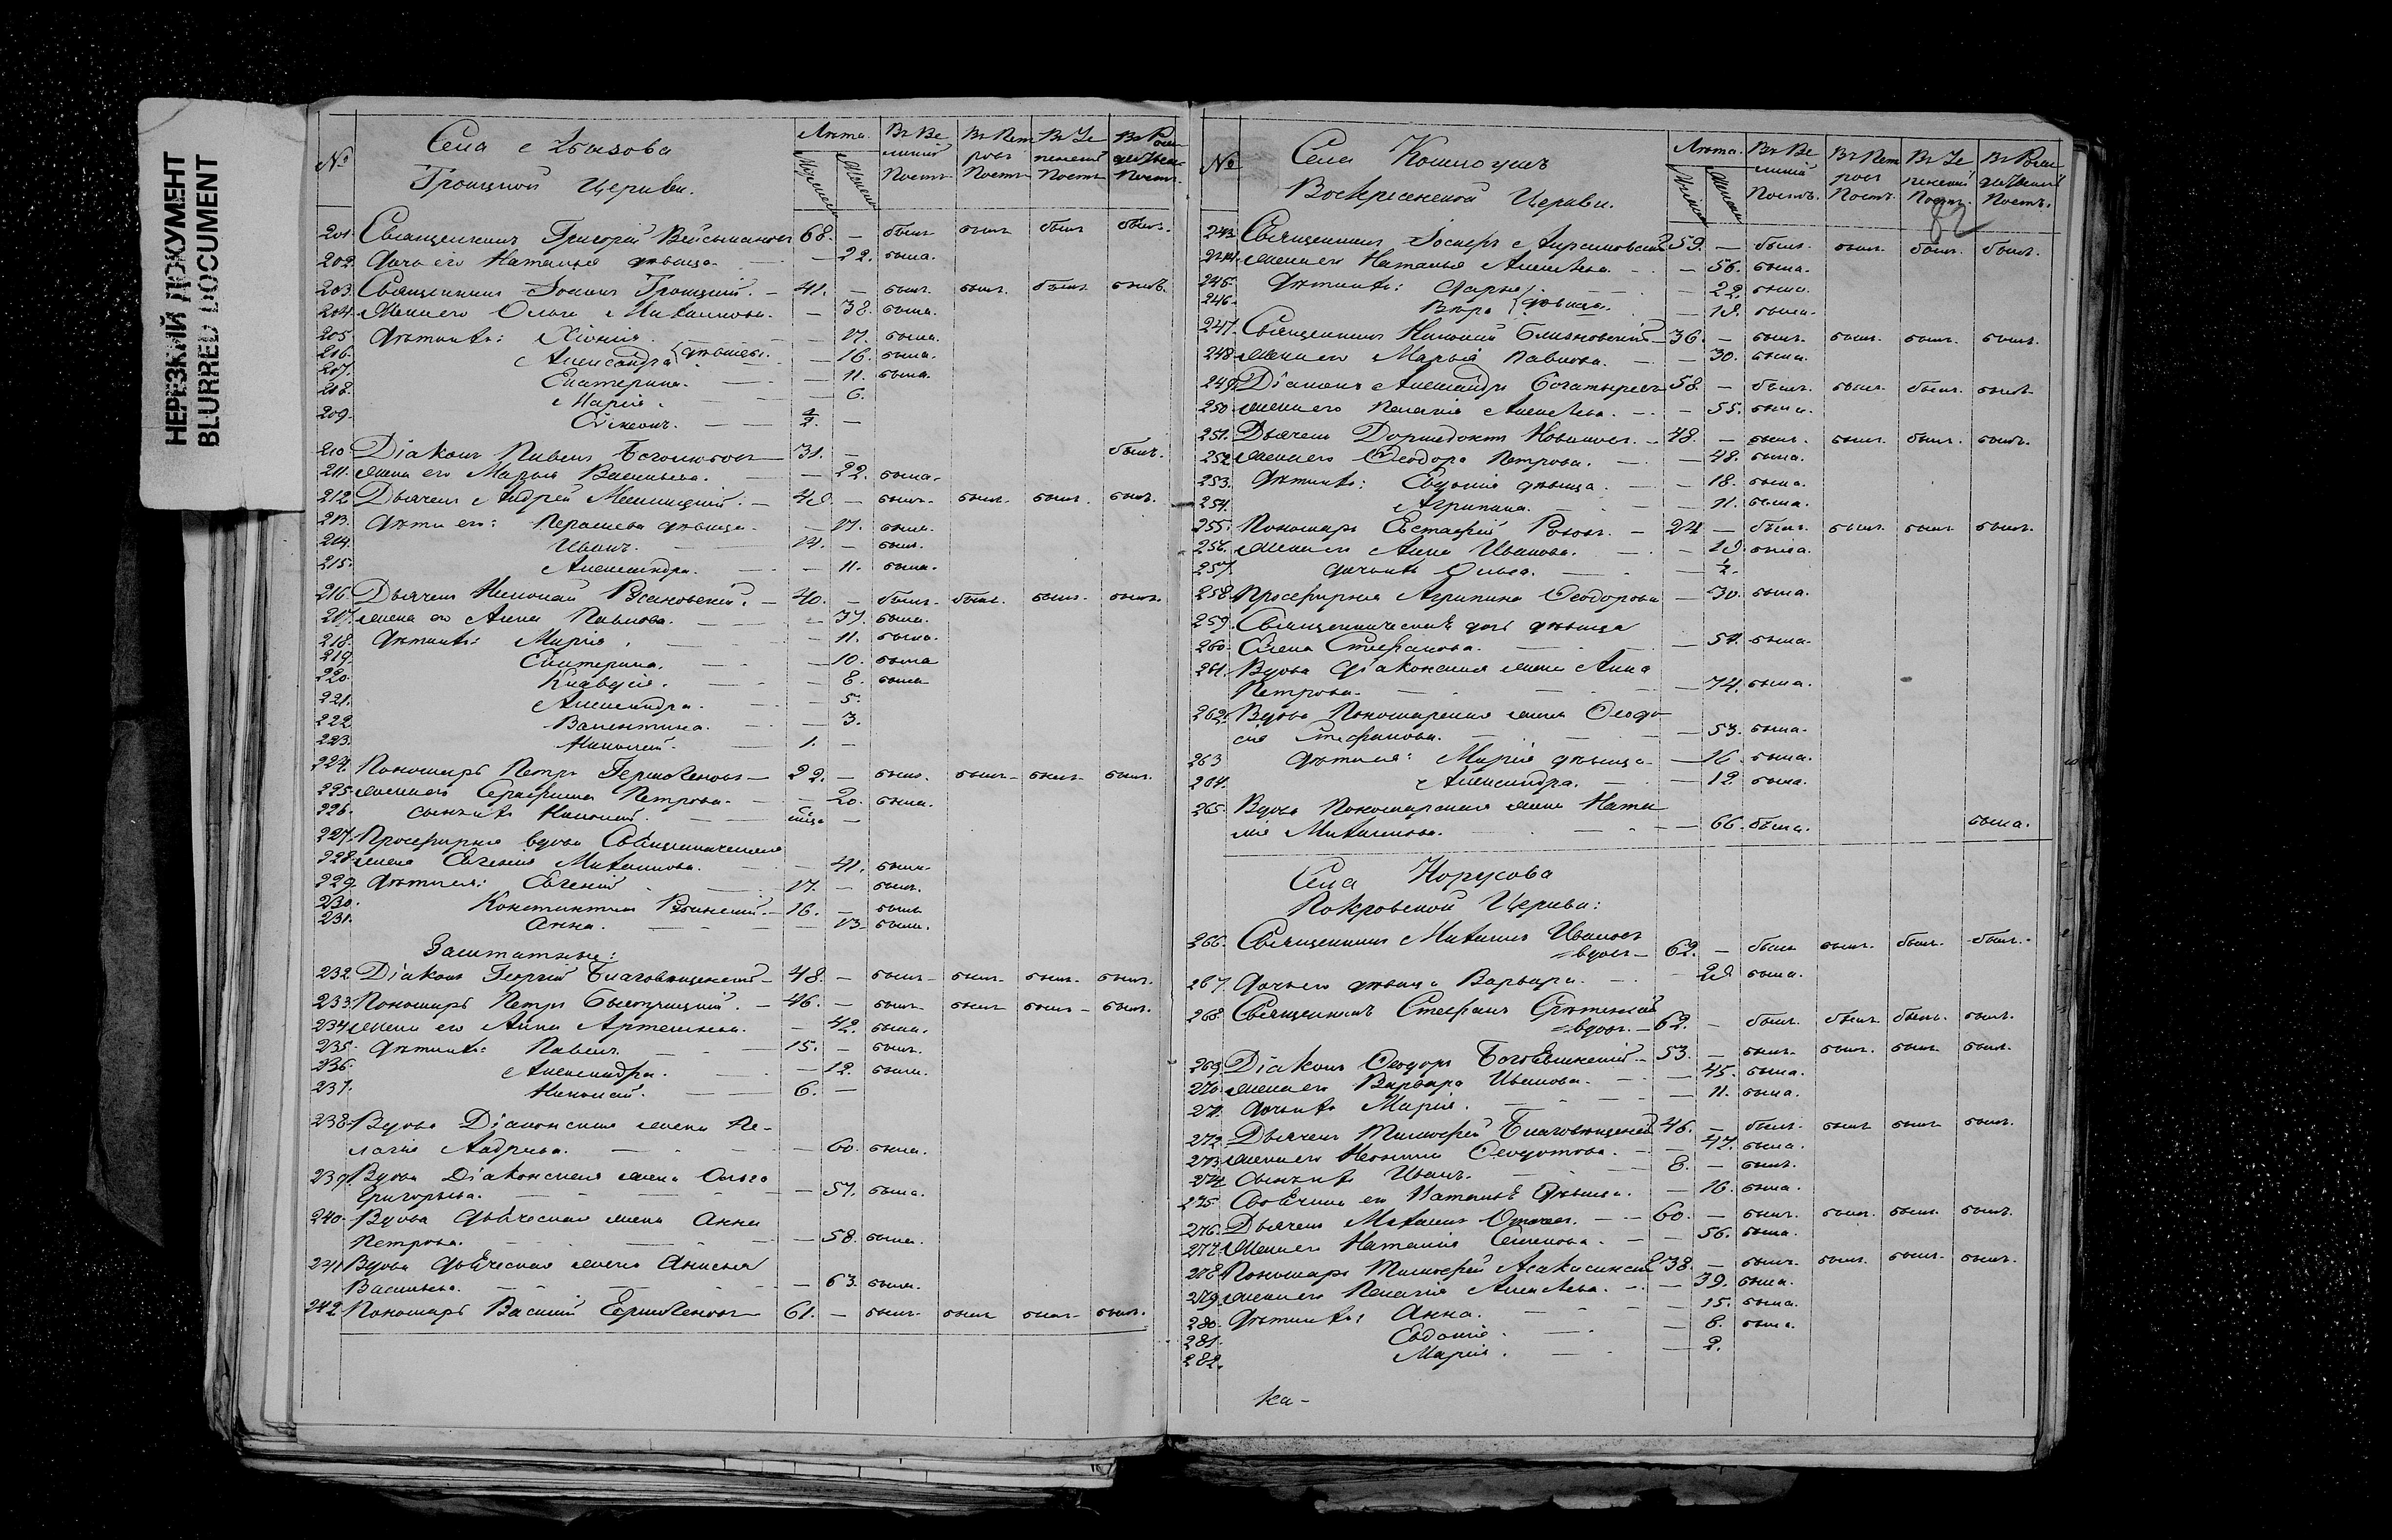 НЕРЕЗКИЙ ДОКУМЕНТ
BLURRED DOCUMENT
№ Села Абызова Троицкой Церкви. Лѣта. Мужеска Женска Въ Великій Постъ Въ Петровъ Постъ Въ Успенскій Постъ Въ Рождественскій Постъ.
201. Священникъ Григорій 68. — былъ былъ былъ былъ.
202. Дочь его Наталья дѣвица — 22. была.
203. Священникъ Іоаннъ Троицкій. — 41. — былъ. былъ. былъ былъ.
204. Жена его Ольга Михаилова. — 38. была.
205. Дѣти ихъ: Хіонія — 17. была.
206. Александра дѣвицы. — 16. была.
207. Екатерина. — 11. была.
208. Марія. — 6.
209. Симеонъ. — ½. —
210. Діаконъ Павелъ Боголюбовъ — 31. — былъ.
211. Жена его Марья Васильева. — 22. была.
212. Дьячекъ Андрей — былъ. былъ. былъ. былъ.
213. Дѣти его: дѣвица — 17. была.
214. Иванъ. 14. — былъ.
215. Александра. — 11. была.
216. Дьячекъ Николай — 40. — былъ. былъ. былъ. былъ.
217. Жена его Анна Павлова. — 37. была.
218. Дѣти ихъ: Марія. — 11. была.
219. Екатерина. — 10. была
220. Клавдія. — 8. была
221. Александра. — 5.
222. Валентина. — 3.
223. Николай. 1. —
224. Пономарь Петръ Гермогеновъ — 22. — былъ. былъ. былъ. былъ.
225. Жена его Серафима Петрова. — 20. была.
226. Сынъ ихъ Николай. —
227. Просфирня вдова Священническая
228. жена Евгенія Михаилова. — 41. была.
229. Дѣти ея: Евгеній 17. — былъ.
230. Константинъ — 16. — былъ
231. Анна. — 13. была.
Заштатные:
232. Діаконъ Георгій Благовѣщенскій — 48. — былъ. былъ. былъ. былъ.
233. Пономарь Петръ Быстрицкій. — 46. — былъ былъ былъ былъ.
234. Жена его Анна Артемьева. — 42. была.
235. Дѣти ихъ: Павелъ. 15. — былъ.
236. Александра. — 12. была.
237. Николай. — 6. —
238. Вдова Діаконская жена Пе-
лагія Андреева. — 60. была.
239. Вдова Діаконская жена Ольга
Григорьева. — 57. была.
240. Вдова Дьяческая жена Анна
Петрова. — 58. была.
241. Вдова Дьяческая жена Анисья
Васильева. — 63. была.
242. Пономарь Василій Ермогеновъ — 61. — былъ. былъ былъ былъ.
№ Села Кошлоушъ Воскресенской Церкви. Лѣта. Въ Великій Постъ. Въ Петровъ Постъ. Въ Успенскій Постъ. Въ Рождественскій Постъ.
82
243. Священникъ Іосифъ 59. — былъ. былъ. былъ. былъ.
244. Жена его Наталья Алексѣева. — 56. была.
245. Дѣти ихъ: Дарья — 22. была.
246. Вѣра дѣвицы. — была.
247. Священникъ Николай — 36. — былъ. былъ. былъ. былъ.
248. Жена его Марья Павлова. — 30. была.
249. Діаконъ Александръ Богатыревъ 58. — былъ. былъ. былъ былъ.
250. Жена его Пелагія Алексѣева. — 55. была.
251. Дьячекъ Доримедонтъ — 48. — былъ. былъ. былъ. былъ.
252. Жена его Ѳеодора Петрова. — 48. была.
253. Дѣти ихъ: Евдокія дѣвица. — 18. была.
254. Агрипина. — 11. была.
255. Пономарь Евстафій — 24 — былъ. былъ. былъ былъ.
256. Жена его Анна Иванова. — была.
257. Дочь ихъ Ольга. — ½.
258. Просфирня Агрипина Ѳеодорова — 30. была.
259. Священническая дочь дѣвица
260. Елена Стефанова. — 54. была.
261. Вдова Діаконская жена Анна
Петрова. — 74. была.
262. Вдова Пономарская жена Ѳеодо-
сія Стефанова. — 53. была.
263 Дѣти ея: Марія дѣвица — 16. была.
264. Александра. — 12. была.
265. Вдова Пономарская жена Ната-
лія Михаилова. — 66. была. была.
Села Норусова
Покровской Церкви:
266. Священникъ Михаилъ Ивановъ
вдовъ — 62. — былъ былъ. былъ. былъ.
267. Дочь его дѣвица Варвара. — была.
268. Священникъ Стефанъ
вдовъ. — 62. — былъ. былъ былъ. былъ.
269. Діаконъ Ѳеодоръ Богоявленскій — 53. — былъ. былъ. былъ. былъ.
270. Жена его Варвара Иванова. — 45. была.
271. Дочь ихъ Марія. — 11. была.
272. Дьячекъ Тимофей Благовѣщенскій 46. — былъ. былъ былъ былъ.
273. Жена его Ѳеодотова. — 47. была.
274. Сынъ ихъ Иванъ. 8. — былъ.
275. его дѣвица. — 16. была.
276. Дьячекъ Михаилъ — 60. — былъ. былъ. былъ. былъ.
277. Жена его Наталія Семенова. — 56. была.
278. Пономарь Тимофей 38. — былъ. былъ. былъ. былъ.
279. Жена его Пелагія Алексѣева. — 39. была.
280. Дѣти ихъ: Анна. — 15. была.
281. Евдокія. — 8. была.
282. Марія. — 2.
ка-